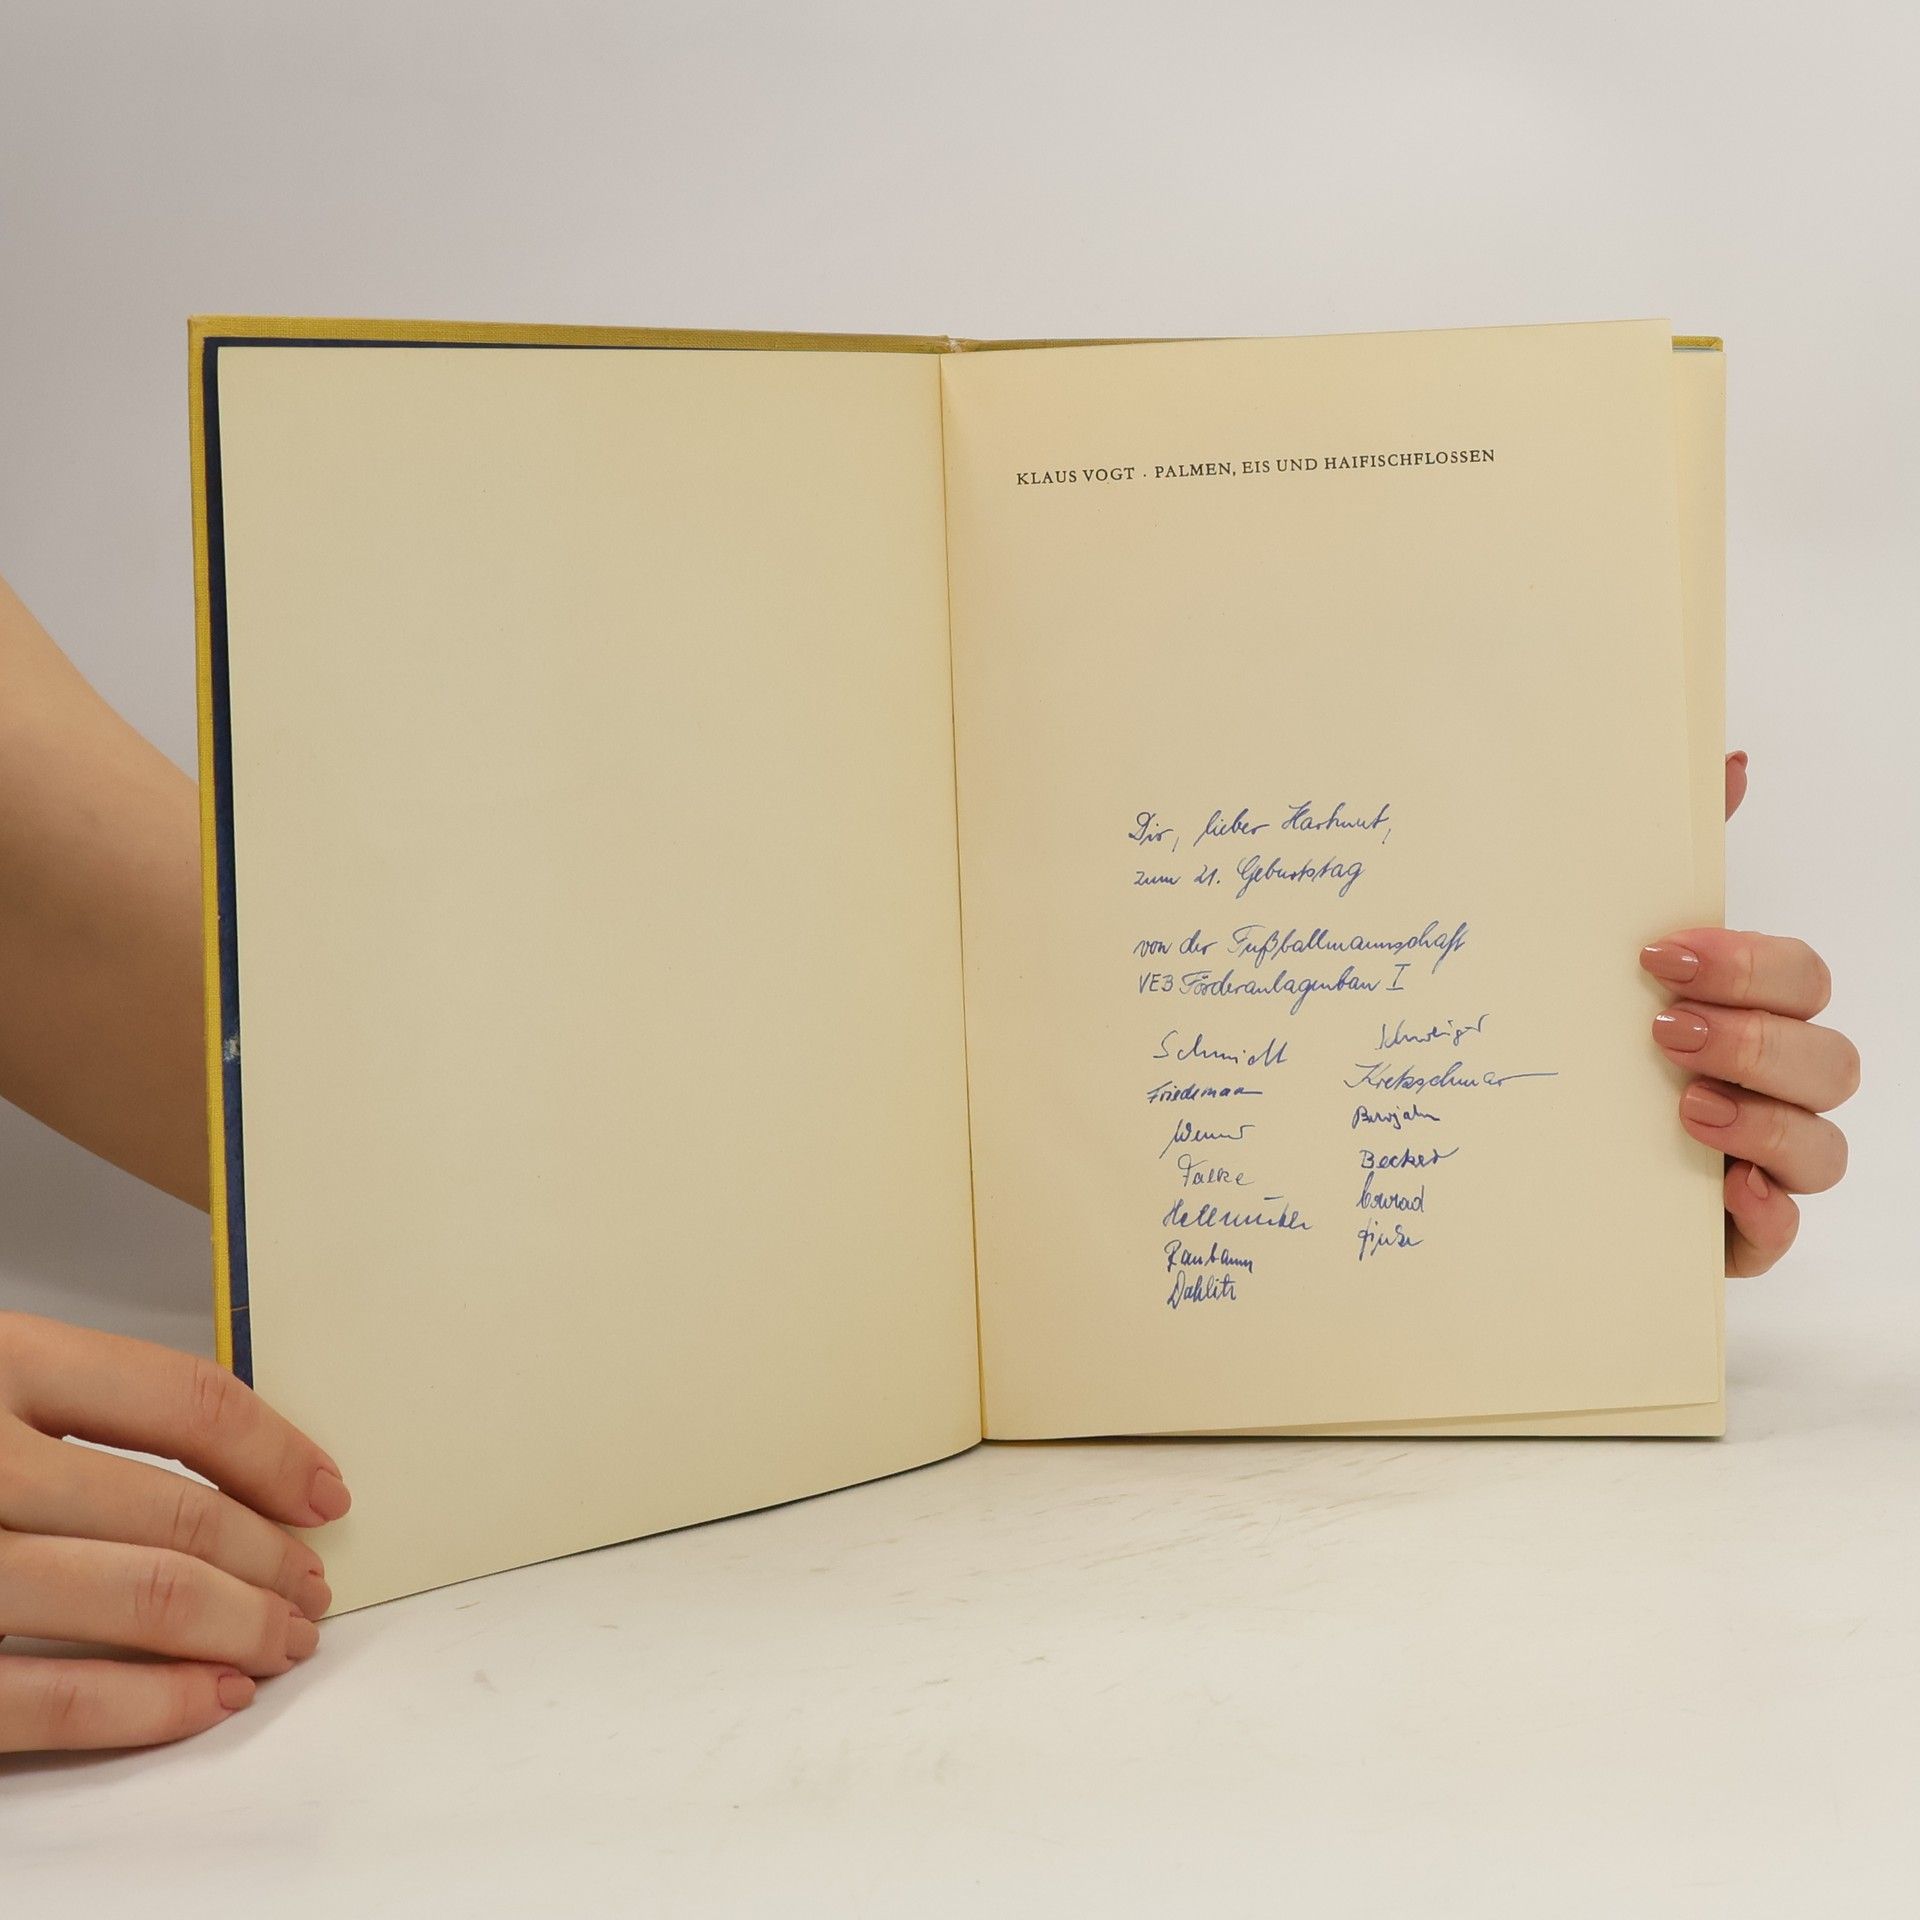 KLAUS VOGT · PALMEN, EIS UND HAIFISCHFLOSSEN
Dir, lieber Hartmut,
zum 21. Geburtstag
von der Fußballmannschaft
VEB Förderanlagenbau I
Schmidt
Friedemann
Werner
Falke
Hellmühle
Raubaum
Dahlitz
Schweiger
Kretzschmar
Becker
Conrad